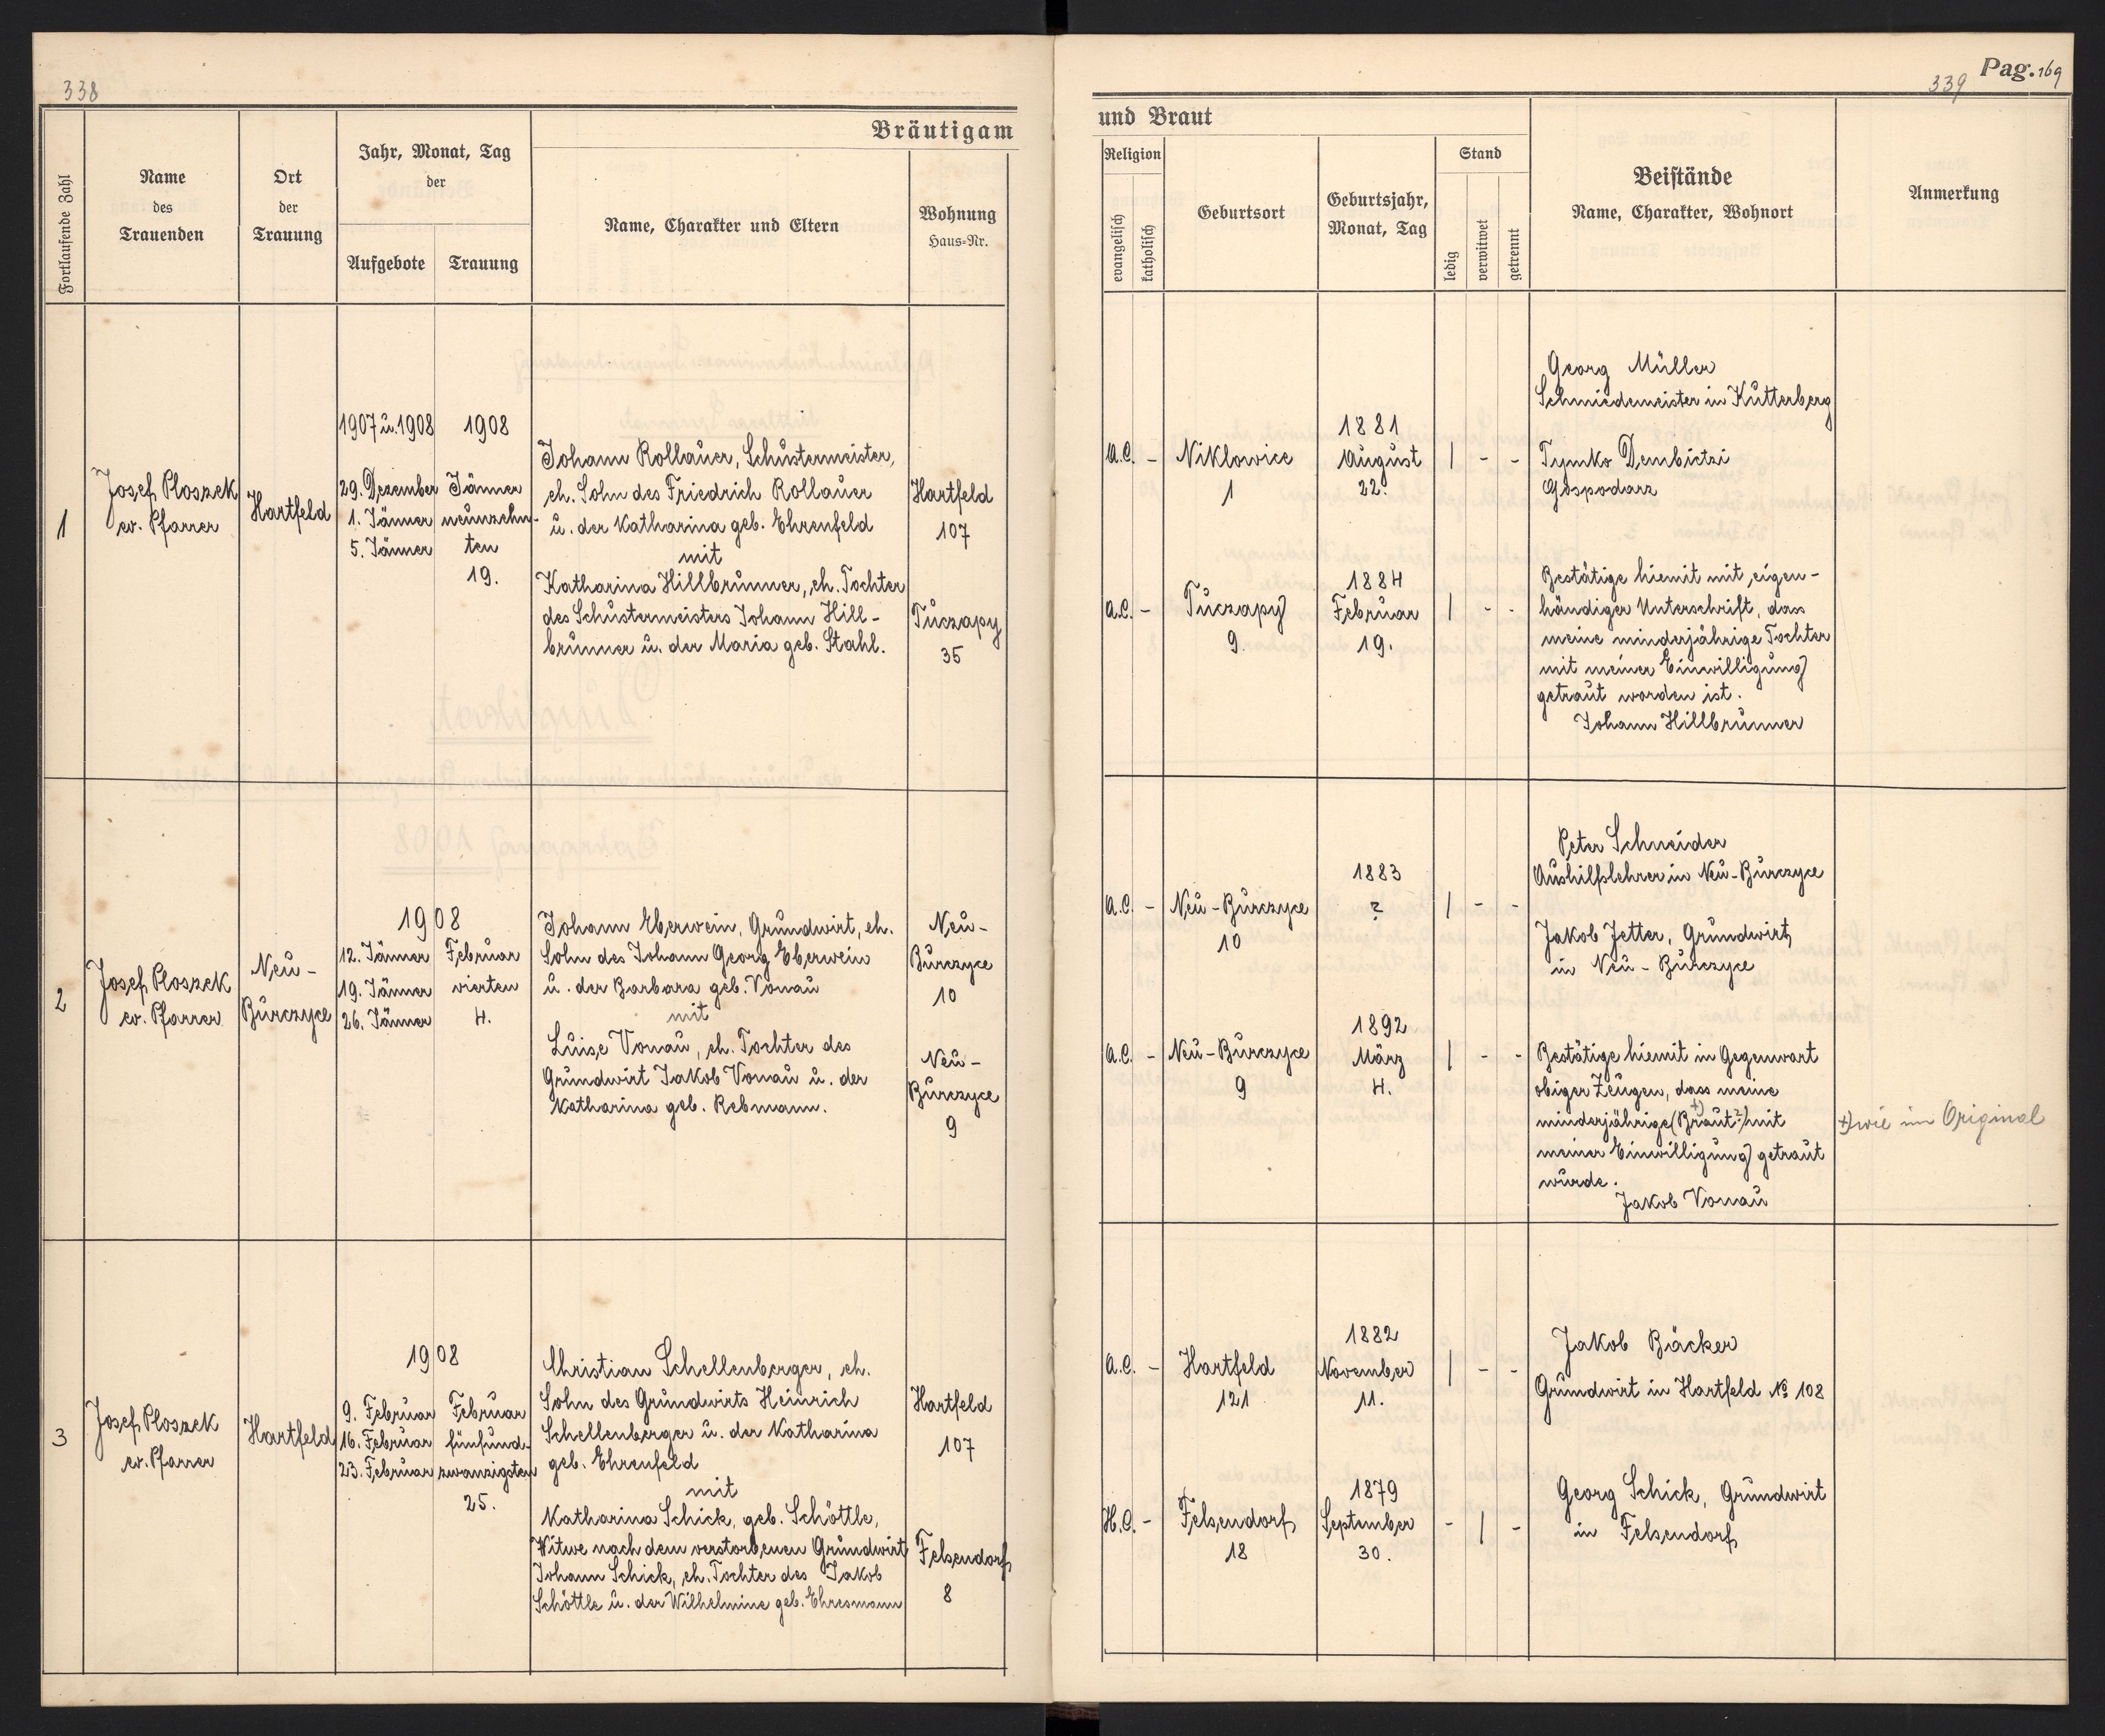 338
Bräutigam
Fortlaufende Zahl
Name
des
Trauenden
Ort
der
Trauung
Jahr, Monat, Tag
der
Aufgebote
Trauung
Name, Charakter und Eltern
Wohnung
Haus-Nr.
1
Josef Ploszek
ev. Pfarrer
Hartfeld
1907 u. 1908
29. Dezember
1. Jänner
5. Jänner
1908
Jänner
neunzehn-
ten
19.
Johann Rollauer, Schustermeister,
eh. Sohn des Friedrich Rollauer
u. der Katharina geb. Ehrenfeld
mit
Katharina Hillbrunner, eh. Tochter
des Schustermeisters Johann Hill-
brunner u. der Maria geb. Stahl.
Hartfeld
107
Tuczapy
35
2
Josef Ploszek
ev. Pfarrer
Neu-
Burczyce
1908
12. Jänner
19. Jänner
26. Jänner
Februar
vierten
4.
Johann Eberwein, Grundwirt, eh.
Sohn des Johann Georg Eberwein
u. der Barbara geb. Vonau
mit
Luise Vonau, eh. Tochter des
Grundwirt Jakob Vonau u. der
Katharina geb. Rebmann.
Neu-
Burczyce
10
Neu-
Burczyce
9
3
Josef Ploszek
ev. Pfarrer
Hartfeld
1908
9. Februar
16. Februar
23. Februar
Februar
fünfund-
zwanzigsten
25.
Christian Schellenberger, eh.
Sohn des Grundwirts Heinrich
Schellenberger u. der Katharina
geb. Ehrenfeld
mit
Katharina Schick, geb. Schöttle,
Witwe nach dem verstorbenen Grundwirt
Johann Schick, eh. Tochter des Jakob
Schöttle u. der Wilhelmine geb. Ehresmann
Hartfeld
107
Felsendorf
8
339
Pag. 169
und Braut
Religion
evangelisch
katholisch
Geburtsort
Geburtsjahr,
Monat, Tag
Stand
ledig
verwitwet
getrennt
Beistände
Name, Charakter, Wohnort
Anmerkung
A.C. -
Niklowice
1
1881
August
22.
| - -
Georg Müller
Schmiedemeister in Kuttenberg
Tymko Dembictzi
Gospodarz
A.C. -
Tuczapy
9.
1884
Februar
19.
| - -
Bestätige hiemit mit eigen-
händiger Unterschrift, dass
meine minderjährige Tochter
mit meiner Einwilligung
getraut worden ist.
Johann Hillbrunner
A.C. -
Neu-Burczyce
10
1883
?
| - -
Peter Schneider
Aushilfslehrer in Neu-Burczyce
Jakob Jetter, Grundwirt
in Neu-Burczyce
A.C. -
Neu-Burczyce
9
1892
März
4.
| - -
Bestätige hiemit in Gegenwart
obiger Zeugen, dass meine
minderjährige (Braut ?) +) mit
meiner Einwilligung getraut
wurde.
Jakob Vonau
+) wie im Original
A.C. -
Hartfeld
121
1882
November
11.
| - -
Jakob Bäcker
Grundwirt in Hartfeld № 108
H.C. -
Felsendorf
18
1879
September
30.
- | -
Georg Schick, Grundwirt
in Felsendorf